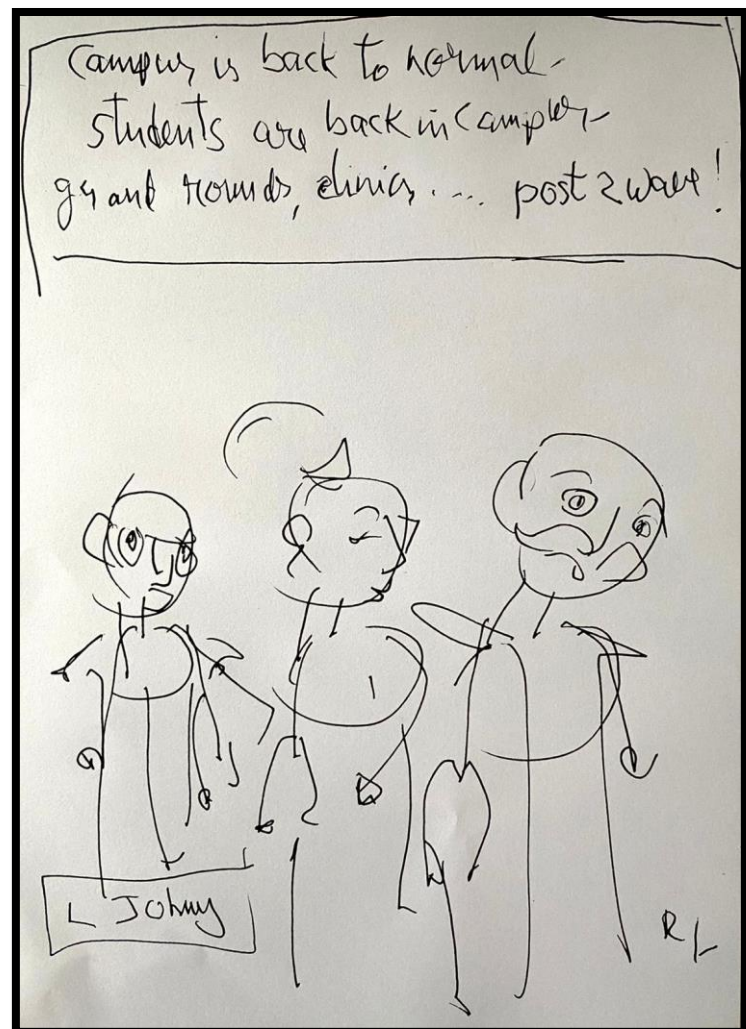 Campus is back to normal-
students are back in Campus-
grand rounds, clinics .... post 2 wave!
L Johny
R L